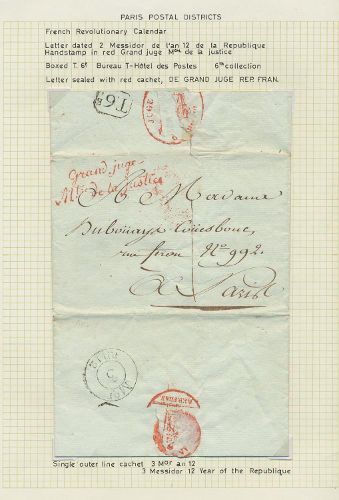 PARIS POSTAL DISTRICTS
French Revolutionary Calendar
Letter dated 2 Messidor de l'an 12 de la Republique
Handstamp in red Grand juge Mon de la justice
Boxed T. 6e Bureau T-Hôtel des Postes 6me collection
Letter sealed with red cachet, DE GRAND JUGE REP. FRAN.
T6e
JUGE
Grand juge
de la Justice
A Madame
Dubouays
rue feron No 992.
A Paris
3
REP. FRAN
Single outer line cachet 3 Mor an 12
3 Messidor 12 Year of the Republique